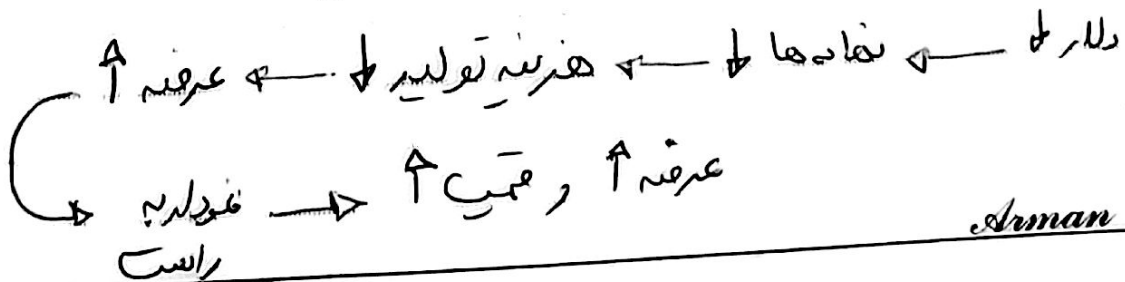 دلار ↓ ← نهاده ها ↓ ← هزینه تولید ↓ ← عرضه ↑
نمودار به راست → عرضه ↑ و قیمت ↑
Arman